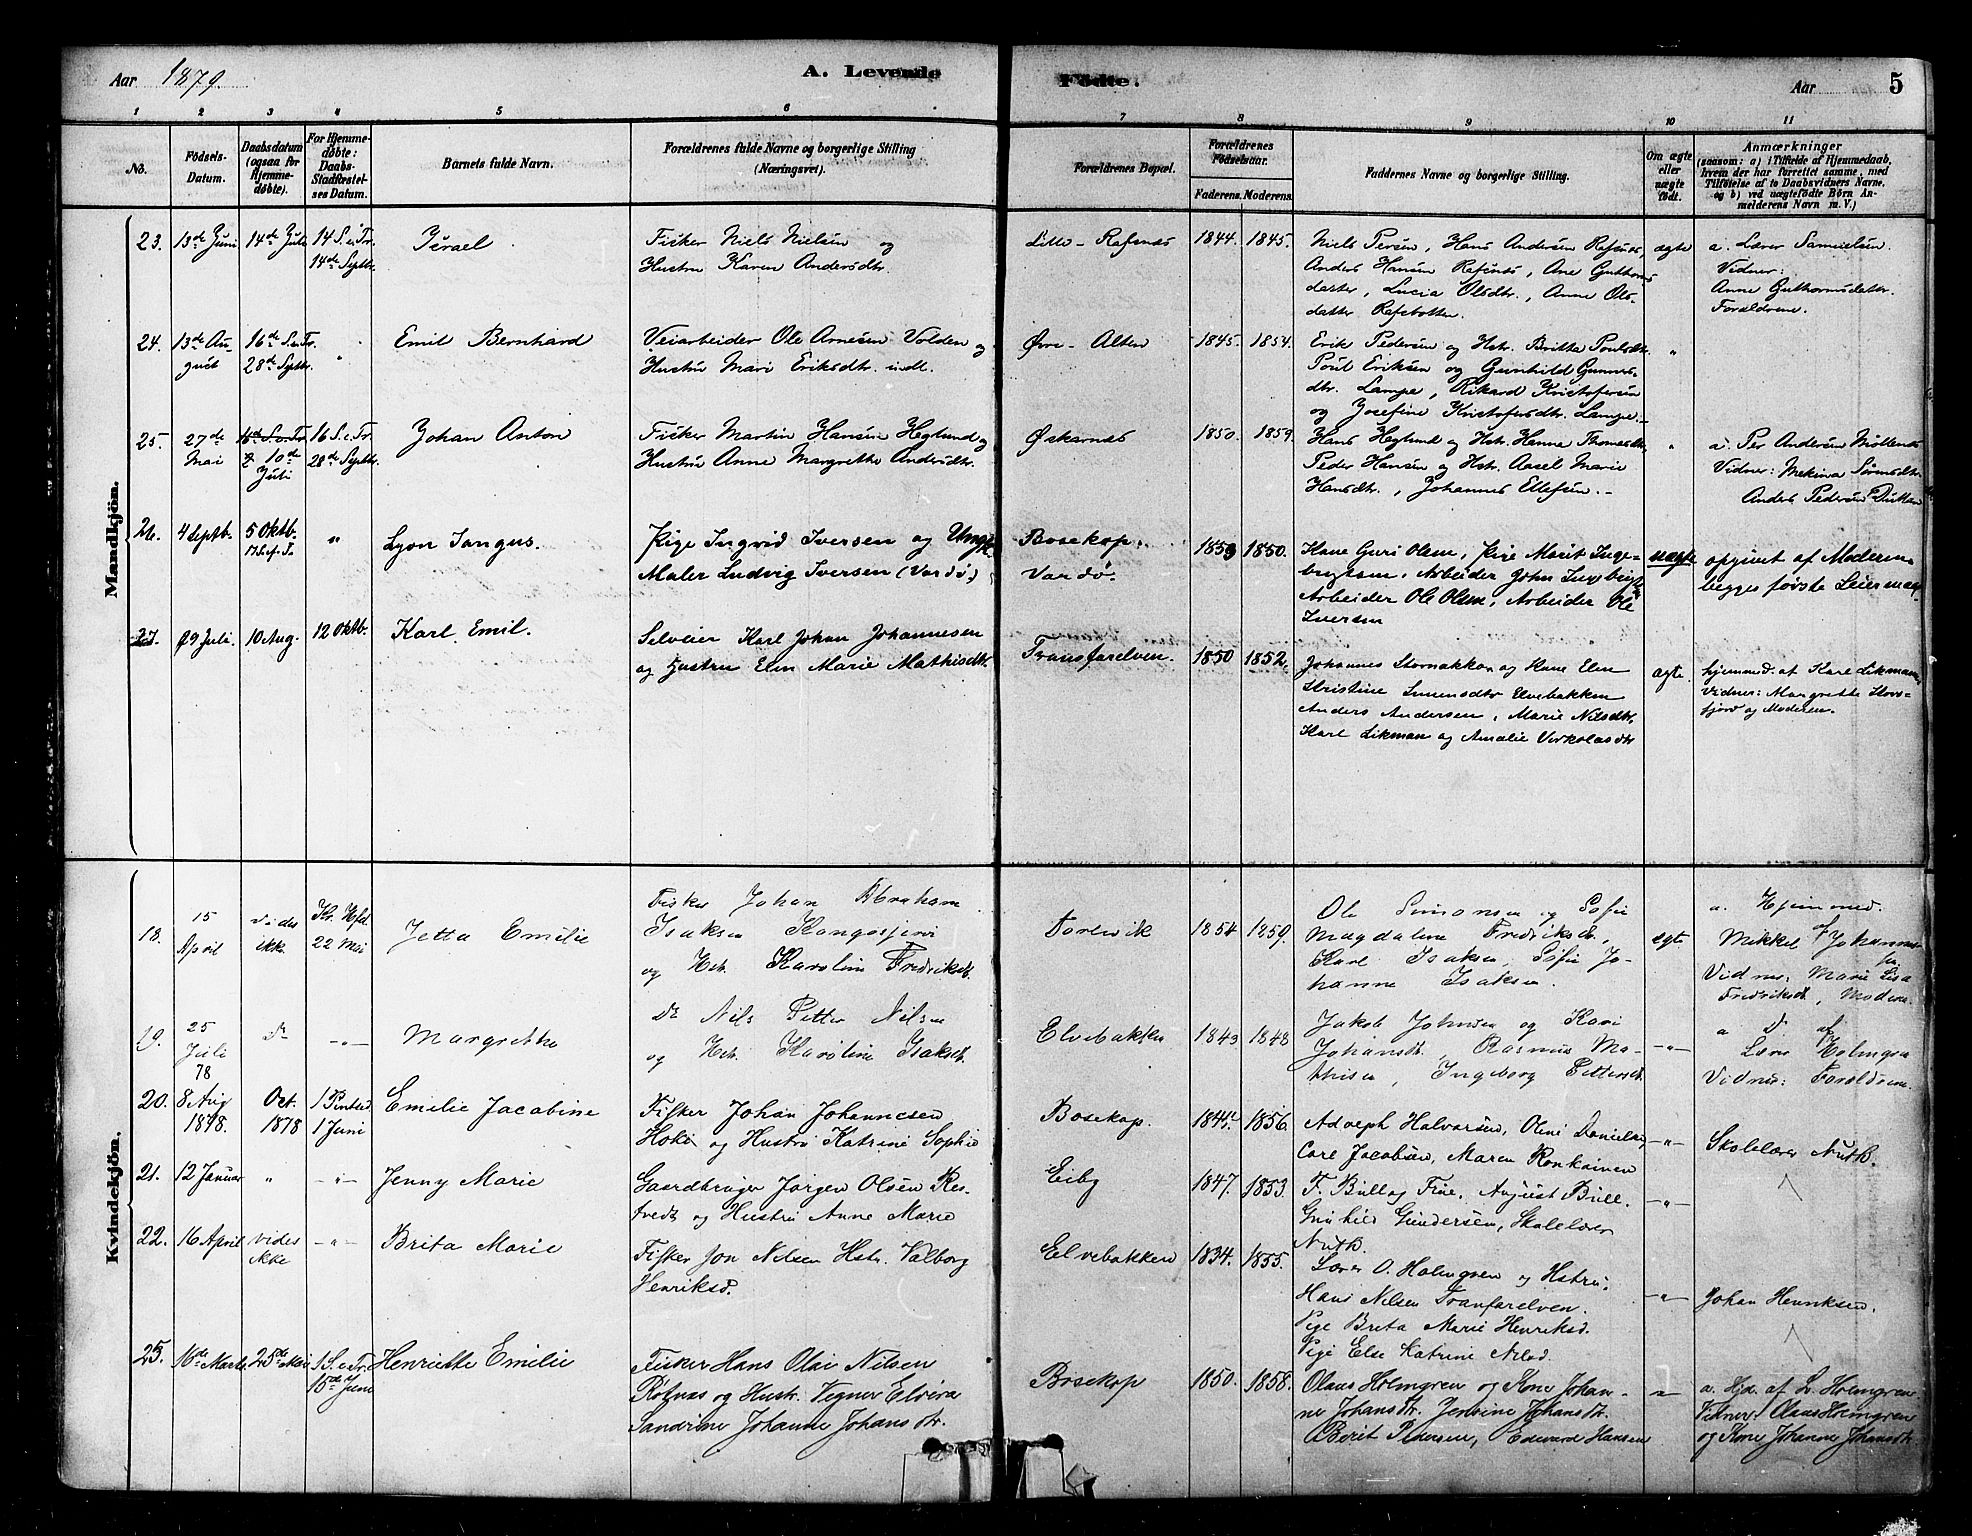 Aar 1879.
A. Levende
Fødte.
Aar
5
1 2 3 4 5 6 7 8 9 10 11
No.
Fødsels-
Datum.
Daabsdatum
(ogsaa for
Hjemme-
døbte).
For Hjemme-
døbte:
Daabs-
Stadfæstel-
ses Datum.
Barnets fulde Navn.
Forældrenes fulde Navne og borgerlige Stilling
(Næringsvei).
Forældrenes Bopæl.
Forældrenes
Fødselsaar.
Faderens. Moderens.
Faddernes Navne og borgerlige Stilling.
Om ægte
eller
uægte
født.
Anmærkninger
(saasom: a) i Tilfælde af Hjemmedaab,
hvem der har forrettet samme, med
Tilføielse af to Daabsvidners Navne,
og b) ved uægtefødte Børn An-
melderens Navn m. V.)
Mandkjön.
23. 13de Juni 14de Juli 14 S. e. Tr.
14de Septbr.
Israel
Fisker Niels Nielsen og
Hustru Karen Andersdtr.
Lille-Rafsnes
1844. 1845.
Niels Persen, Hans Andersen Rafsnes,
Anders Hansen Rafsnes, Ane Guthorms
datter, Lucia Olsdtr., Anne Ols-
datter Rafsbotten.
ægte
a. Lærer Samuelsen.
Vidner:
Anne Guthormsdattr.
Forældrene.
24. 13de Au-
gust
16de S. e. Tr.
28de Septbr.
"
Emil Bernhard
Veiarbeider Ole Arnesen Volden og
Hustru Mari Eriksdtr. indl.
Øvre-Alten
1845. 1854.
Erik Pedersen og Hstr. Britta Poulsdtr.
Poul Eriksen og Gunhild Gunners-
dtr. Lampe, Rikard Kristofersen
og Josefine Kristofersdtr. Lampe.
"
25. 27de
Mai
10de
Juli
16 S. e. Tr.
28de Septbr.
Johan Anton
Fisker Martin Hansen Heglund og
Hustru Anne Margrethe Andersdtr.
Øskarnes
1850. 1859.
Hans Heglund og Hstr. Hanna Thomasdtr,
Peder Hansen og Hstr. Aasel Marie
Hansdtr., Johannes Ellefsen.
"
a. Per Andersen Møllenes
Vidner: Mekina Sørensdtr.
Anders Pedersen
26. 4 Septb. 5 Oktb.
"
Lyon Jangus.
Pige Ingrid Iversen og Ungk.
Maler Ludvig Iversen (Vardø)
Bosekop.
Vardø.
1859 1850.
Kone Guri Olsen, Pige Marit Inge-
brigtsen, Arbeider John Ingebrigtsen
Arbeider Ole Olsen, Arbeider Ole
Iversen
uægte
opgivet af Moderen
begges første Leiermaal.
27. 29 Juli. 10 Aug. 12 Oktb.
Karl Emil.
Selveier Karl Johan Johannesen
og Hustru Elen Marie Mathisdtr.
Tranfarelven.
1850 1852.
Johannes Stornakka og Kone Elen
Kristine Simensdtr Elvebakken
Anders Andersen, Marie Nilsdtr,
Karl Likman og Amalie Virkolasdtr
ægte.
hjemmed. af Karl Likman
Vidner: Margrette Stor-
fjord og Moderen.
Kvindekjön.
18. 15
April
Vides
ikke.
Kr. Hfd.
22 Mai
Jetta Emilie
Fisker Johan Abraham
Isaksen Kangosjervi
og Hstr. Karoline Fredriksdt.
Torevik
1854 1859.
Ole Simonsen og Sofie
Magdalene Fredriksdt.,
Karl Isaksen, Sofie Jo-
hanne Isaksen.
ægte
a. Hjemmed.
af
Mikkel Johannes-
sen.
Vidner: Marie Lisa
Fredriksdt, Moderen.
19. 25
Juli
78
Do
-"-
Margrethe
Do Nils Petter Nilsen
og Hstr. Karoline Isaksdt.
Elvebakken
1843 1848
Jakob Johnsen og Kari
Johansdt, Rasmus Ma-
thisen, Ingeborg Pettersdt.
-"-
a Do af
Lærer Holmgren
Vidner: Forældrene.
20. 8 Aug
1878.
Oct.
1878
1 Pintsed.
1 Juni
Emilie Jacobine
Fisker Johan Johannesen
Hoke og Hustru Katrine Sophie
Bosekop.
1844. 1856.
Adolph Halvorsen, Oline Danielsen,
Carl Jacobsen, Maren Ronkainen
-"-
Skolelærer Nutti.
21. 12 Januar
" -"-
Jenny Marie
Gaardbruger Jørgen Olsen Res-
tvedt og Hustru Anne Marie
Eiby
1847. 1853.
F. Bull og Frue, August Bull.
Gunhild Gundersen, Skolelærer
Nutti.
-"-
22. 16 April vides
ikke
-"-
Brita Marie
Fisker Jon Nilsen Hstr. Valborg
Henriksd.
Elvebakken
1834. 1855.
Lærer O. Holmgren og Hstru,
Hans Nilsen Tranfarelven.
Pige Breta Marie Henriksd.
Pige Else Katrine Nilsd.
-"-
Johan Henriksen.
23. 16de Marts 25de Mai 1 S. e. Tr.
15de Juni
Henriette Emilie
Fisker Hans Olai Nilsen
Rotnæs og Hustr. Vegner Elvira
Sandrine Johanne Johansdtr.
Bosekop
1850. 1858.
Olaus Holmgren og Kone Johan-
ne Johansdtr. Jensine Johansdtr.
Berit Pedersen, Edevard Hansen
"
a. Hjd. af L. Holmgren.
Vidner: Olaus Holmgren
og Kone Johanne Johansdtr.